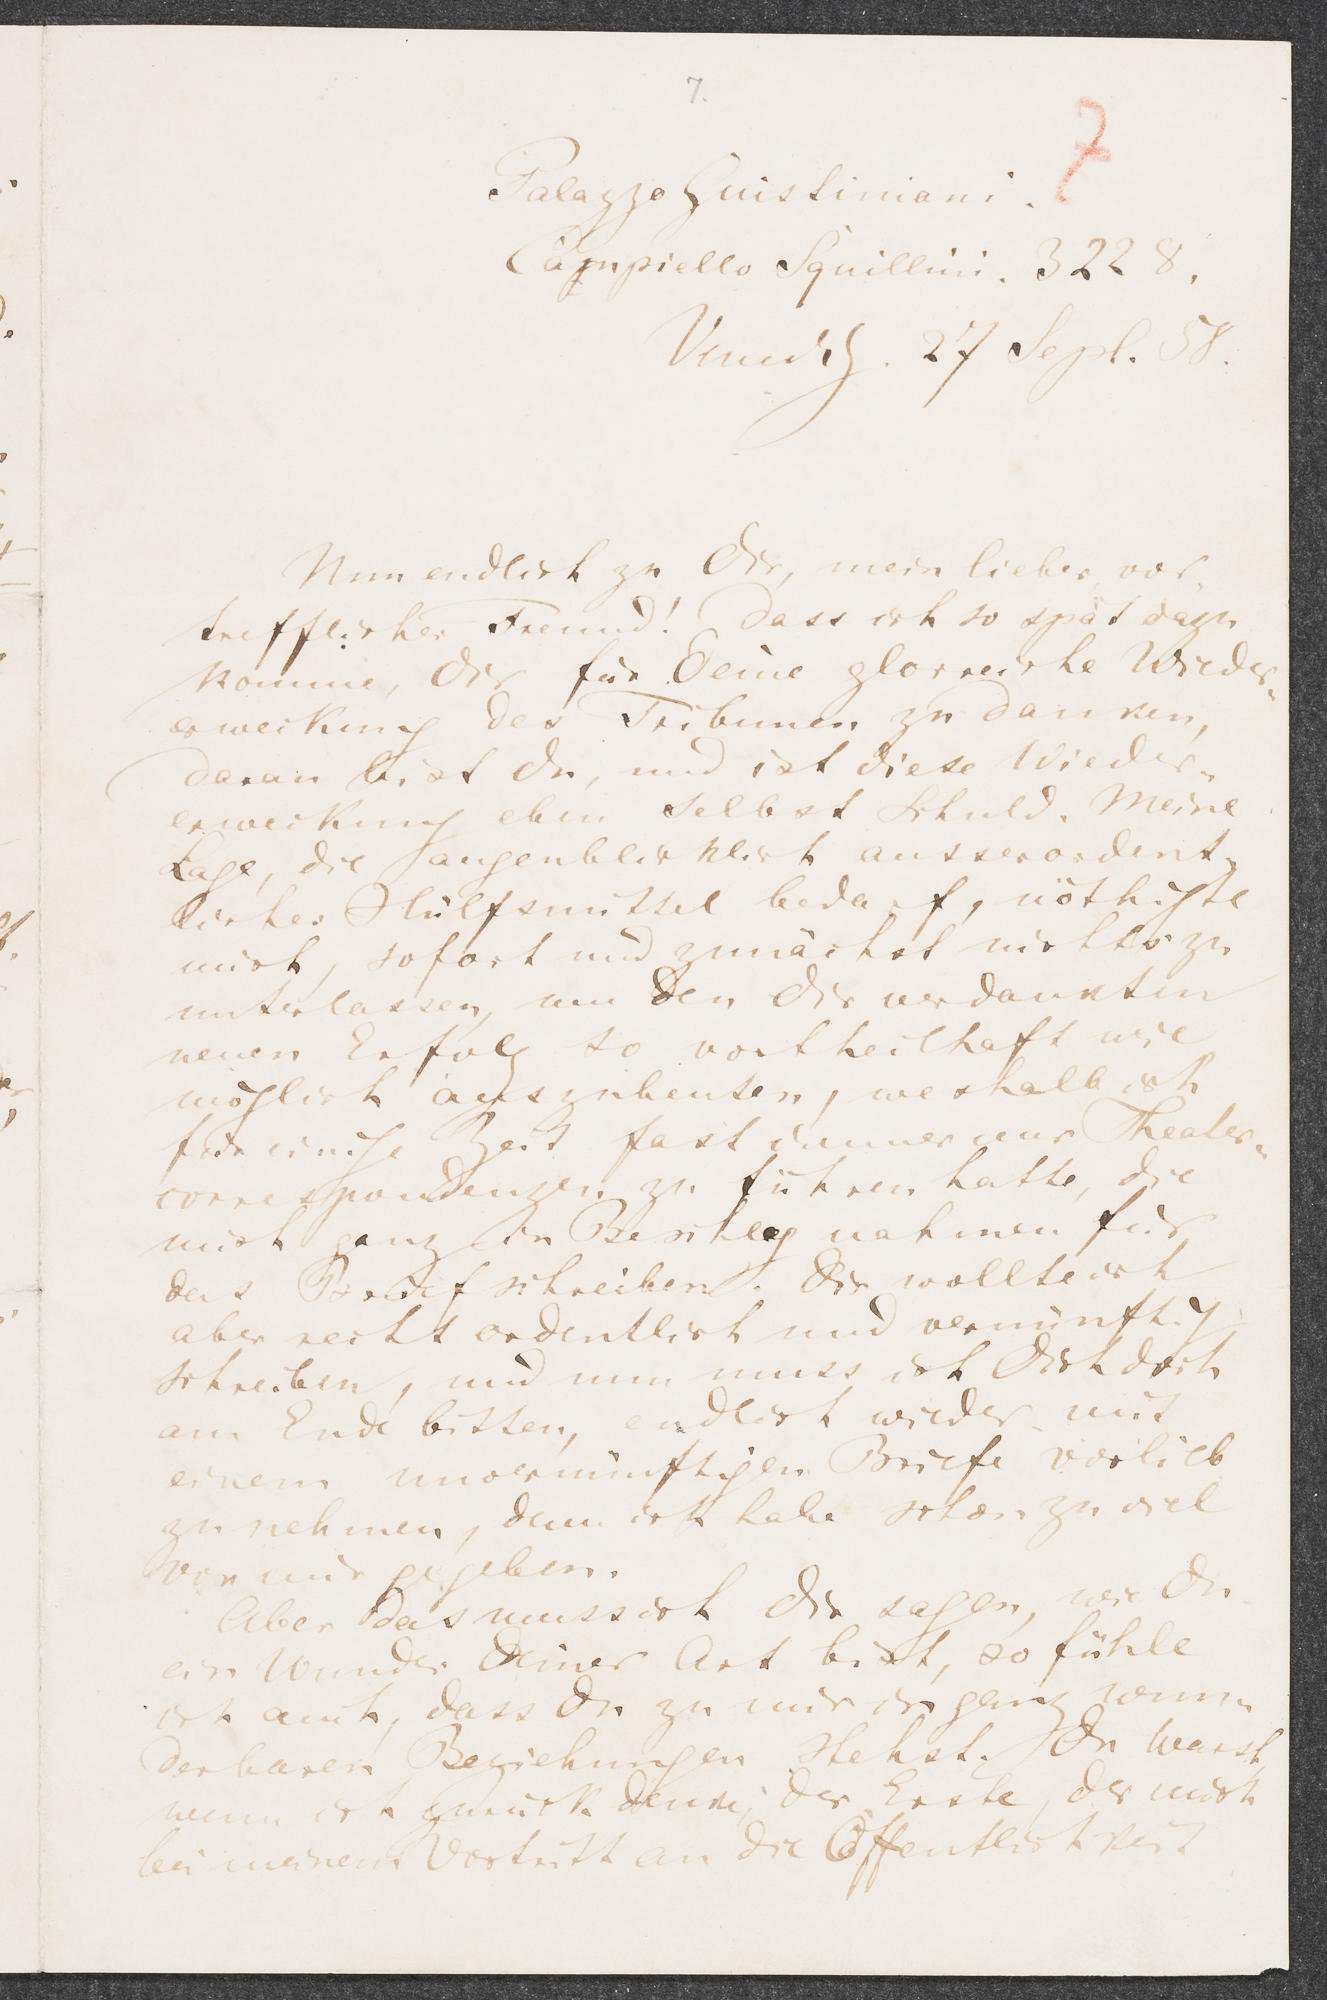 7.
7
Palazzo Guistiniani.
Campiello Squillini. 3228.
Venedig. 27 Sept. 58.
Nun endlich zu Dir, mein lieber, vor-
trefflicher Freund! Dass ich so spät dazu
komme, Dir für Deine glorreiche Wieder-
erweckung des Tribunen zu danken,
daran bist Du, und ist diese Wieder-
erweckung eben selbst Schuld. Meine
Lage, die augenblicklich ausserordent-
licher Hülfsmittel bedarf, nöthigte
mich, sofort und zunächst nichts zu
unterlassen, um den Dir verdankten
neuen Erfolg so vortheilhaft wie
möglich auszubeuten, weshalb ich
für einige Zeit fast immer nur Theater-
correspondenzen zu führen hatte, die
mich ganz in Beschlag nahmen für
das Briefschreiben. Dir wollte ich
aber recht ordentlich und vernünftig
schreiben, und nun muss ich Dich doch
am Ende bitten, endlich wieder mit
einem unvernünftigen Briefe vorlieb
zu nehmen, denn ich habe schon zu viel
von mir gegeben.
Aber das muss ich Dir sagen, wie Du
ein Wunder Deiner Art bist, so fühle
ich auch, dass Du zu mir in ganz wun-
derbaren Beziehungen stehst. Du warst,
wenn ich zurück denke, der Erste, der mich
bei meinem Vortritt an die Öffentlichkeit